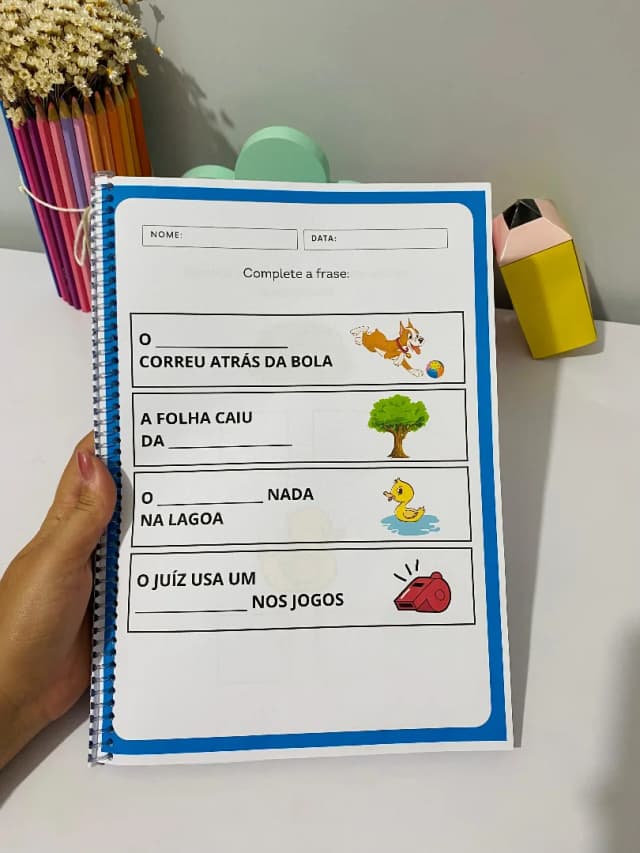 NOME:
DATA:
Complete a frase:
O _______________
CORREU ATRÁS DA BOLA
A FOLHA CAIU
DA ______________
O ____________ NADA
NA LAGOA
O JUÍZ USA UM
_____________ NOS JOGOS